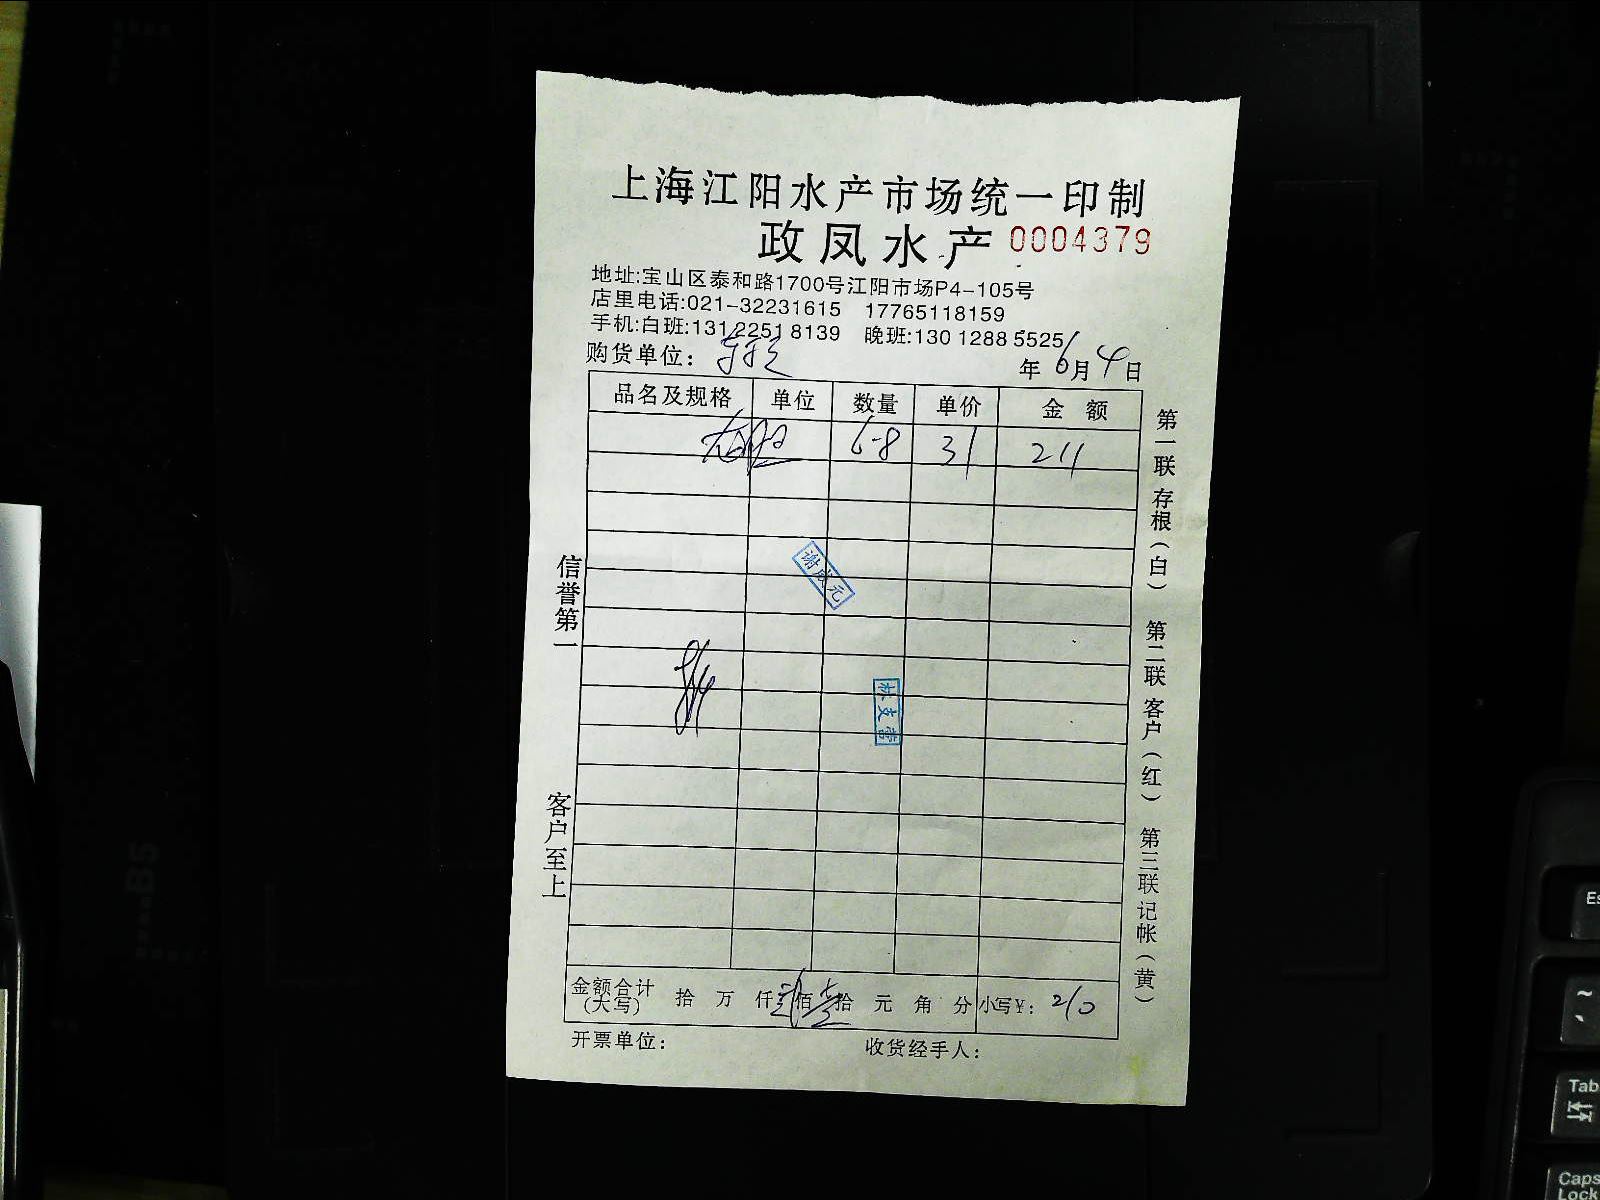 上海江阳水产市场统一印制
政凤水产 0004379
地址:宝山区泰和路1700号江阳市场P4-105号
店里电话:021-32231615 17765118159
手机:白班:131 2251 8139 晚班:130 1288 5525
购货单位:
年6月4日
品名及规格 单位 数量 单价 金额
6-8 31 211
谢成元
信誉第一
客户至上
第一联 存根(白) 第二联 客户(红) 第三联 记帐(黄)
金额合计(大写) 拾 万 仟 贰佰壹拾 元 角 分 小写¥: 210
开票单位: 收货经手人:
B5
Es
~
Tab
Caps
Lock